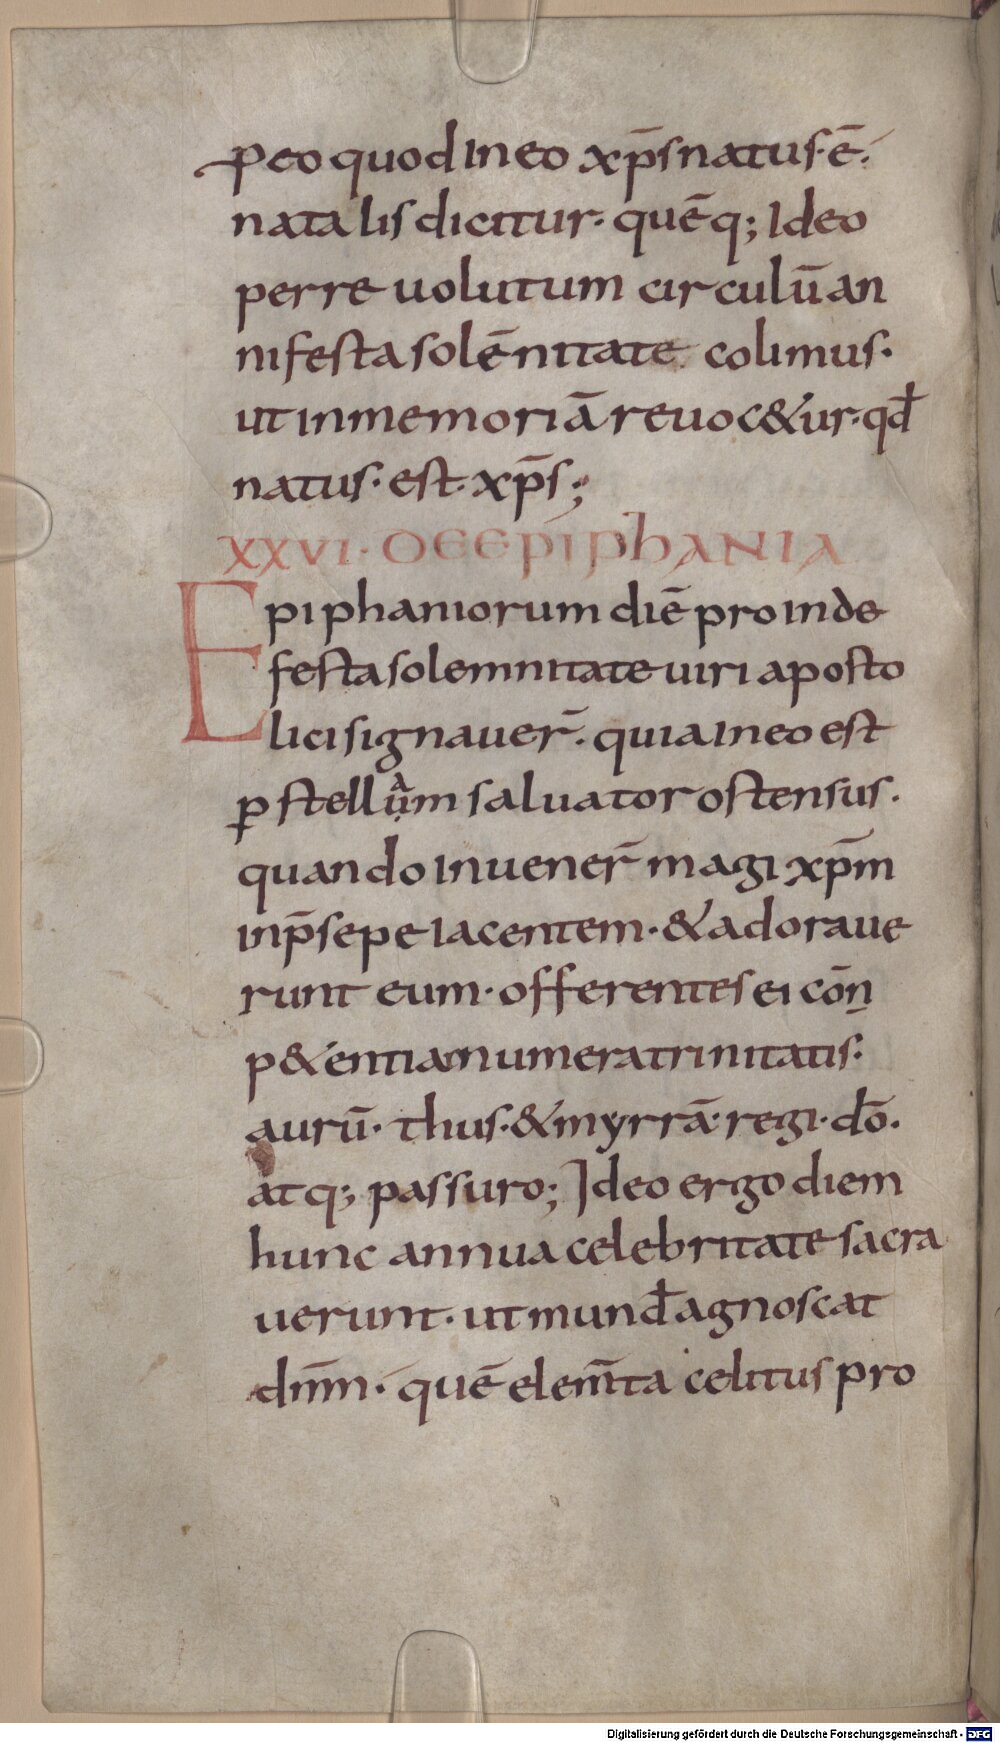 ꝓeo quod in eo xp̄s natus· ē·
natalis dicitur· quē q; Ideo
per reuolutum circulū an
ni festa solēnitate colimus·
ut in memoriā reuoc&ur· qđ
natus· est· xp̄s;
XXVI· DE EPIPHANIA
Epiphaniorum diē proinde
festa solemnitate uiri aposto
lici signauer̄· quia in eo est
ꝑ stellam saluator ostensus·
quando inuener̄ magi xp̄m
in p̄sepe iacentem· & adoraue
runt eum· offerentes ei cōn
p&entia munera trinitatis·
aurū· thus· & myrrā· regi· dō·
atq; passuro; Ideo ergo diem
hunc annua celebritate sacra
uerunt· ut mund̄ agnoscat
dn̄m· quē elem̄ta celitus pro
Digitalisierung gefördert durch die Deutsche Forschungsgemeinschaft - DFG